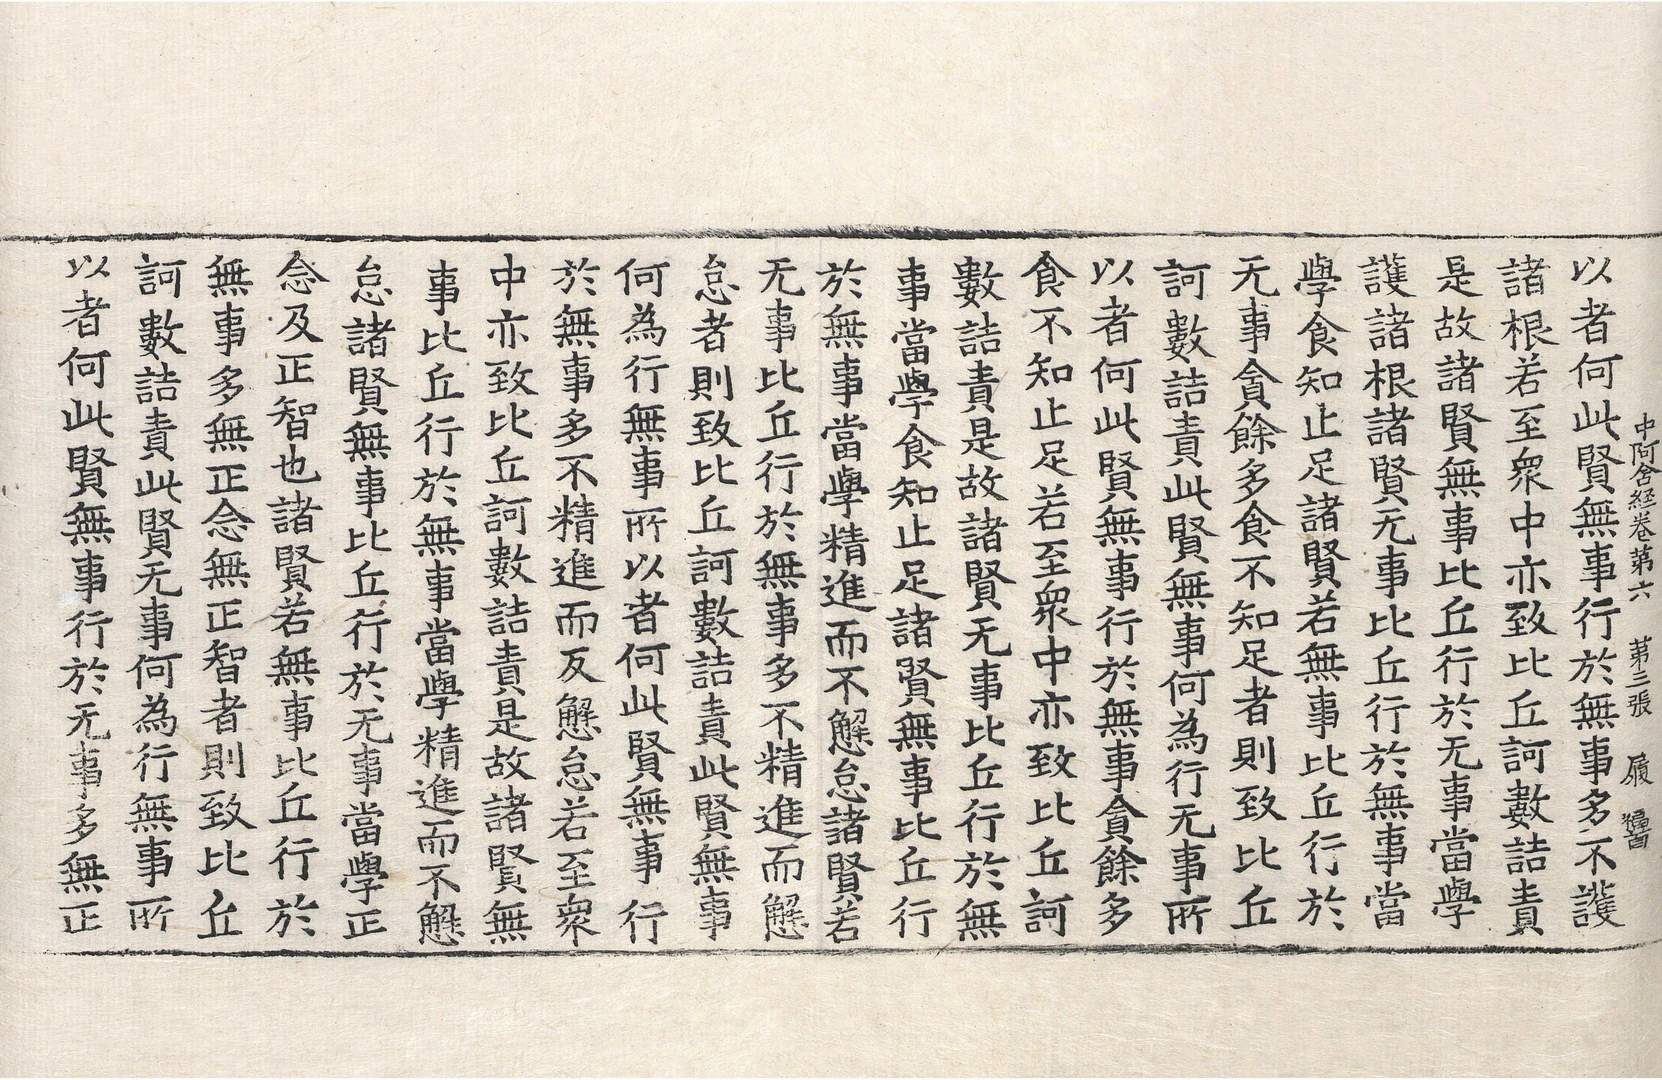 中阿含経卷苐六 苐三張 履
以者何此賢無事行於無事多不護
諸根若至衆中亦致比丘訶數詰責
是故諸賢無事比丘行於无事當學
護諸根諸賢无事比丘行於無事當
學食知止足諸賢若無事比丘行於
无事貪餘多食不知足者則致比丘
訶數詰責此賢無事何為行无事所
以者何此賢無事行於無事貪餘多
食不知止足若至衆中亦致比丘訶
數詰責是故諸賢无事比丘行於無
事當學食知止足諸賢無事比丘行
於無事當學精進而不懈怠諸賢若
无事比丘行於無事多不精進而懈
怠者則致比丘訶數詰責此賢無事
何為行無事所以者何此賢無事行
於無事多不精進而反懈怠若至衆
中亦致比丘訶數詰責是故諸賢無
事比丘行於無事當學精進而不懈
怠諸賢無事比丘行於无事當學正
念及正智也諸賢若無事比丘行於
無事多無正念無正智者則致比丘
訶數詰責此賢无事何為行無事所
以者何此賢無事行於无事多無正